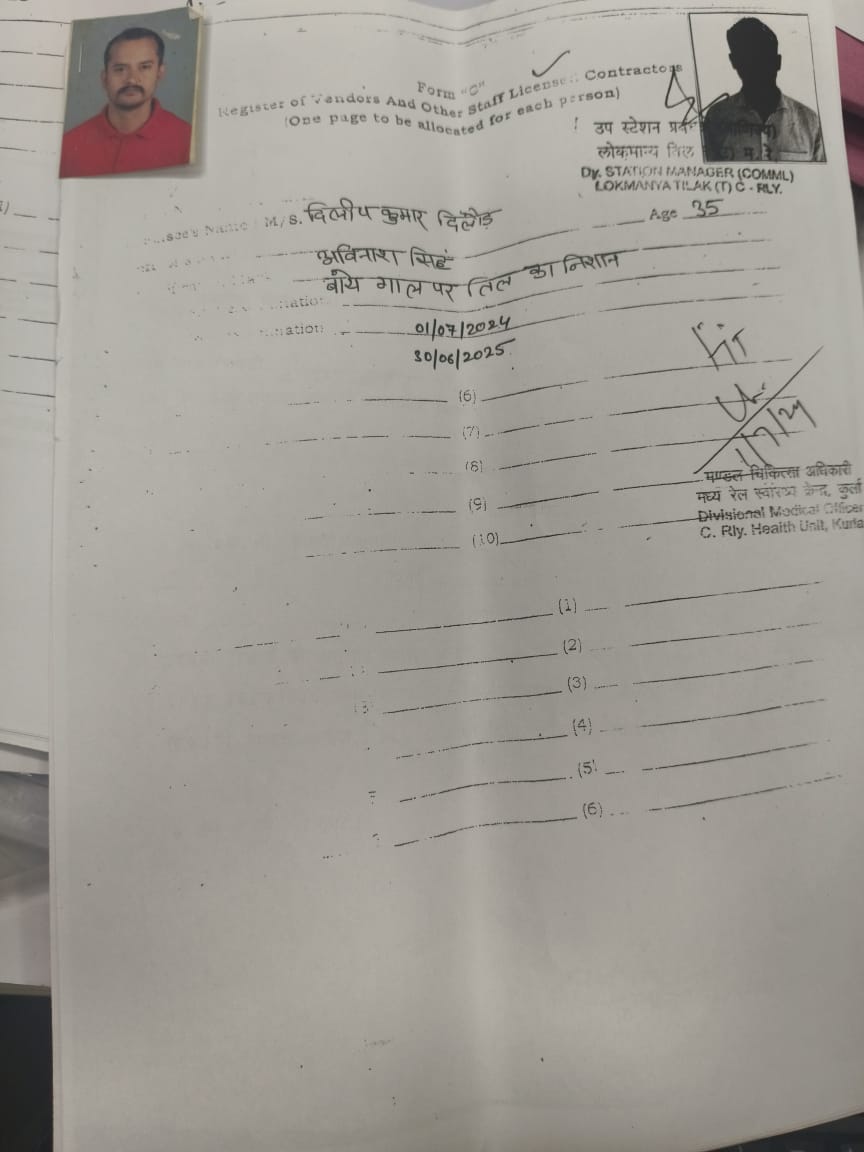 Form "C"
Register of Vendors And Other Staff License Contractors
(One page to be allocated for each person)
उप स्टेशन
लोकमान्य
Dy. STATION MANAGER (COMML)
LOKMANYA TILAK (T) C - RLY.
Name M/s. दिलीप कुमार Age 35
अविनाश सिहं
बांये गाल पर तिल का निशान
01/07/2024
30/06/2025
(6)
(7)
(8)
(9)
(10)
Fit
1/7/24
मण्डल चिकित्सा अधिकारी
मध्य रेल स्वास्थ्य केन्द्र, कुर्ला
Divisional Medical Officer
C. Rly. Health Unit, Kurla
(1)
(2)
(3)
(4)
(5)
(6)